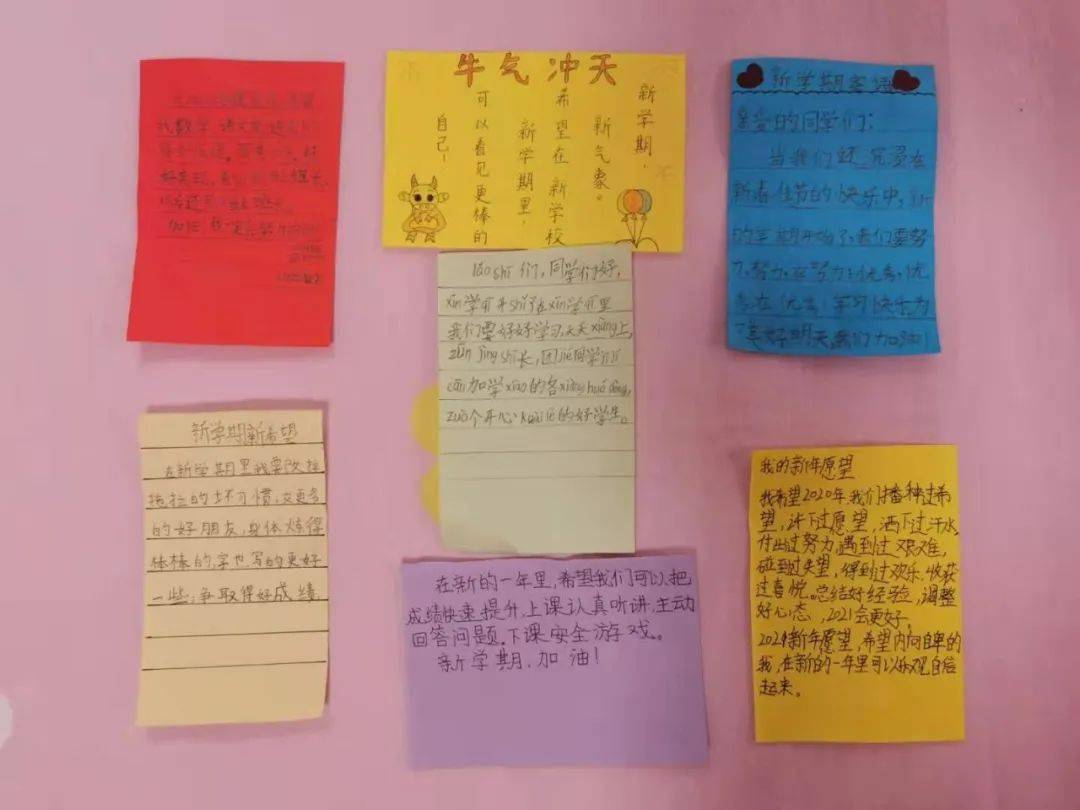 我数学,语文
好表现,
牛气冲天
新学期,
新气象。
希望在新学校
新学期里,
可以看见更棒的
自己!
新学期寄语
亲爱的同学们:
当我们还沉浸在
新春佳节的快乐中,新
的学期开始了,我们要努
力,努力,再努力;优秀,优
秀,在优秀!学习快乐为
了美好明天,我们加油!
lǎo shī们,同学们好,
xīn学期开shǐ了在xīn学期里
我们要好好学习,天天xiàng上,
zūn jìng shī长,团jié同学jījí
cān加学xiào的各xiàng huó dòng,
zuò个开心kuàilè的好学生。
新学期新希望
在新学期里我要改掉
拖拉的坏习惯,交更多
的好朋友,身体炼得
棒棒的,字也写的更好
一些,争取得好成绩
在新的一年里,希望我们可以把
成绩快速提升,上课认真听讲,主动
回答问题,下课安全游戏。
新学期,加油!
我的新年愿望
我希望2020年,我们播种过希
望,许下过愿望,洒下过汗水,
付出过努力,遇到过艰难,
碰到过失望,得到过欢乐,收获
过喜悦。总结好经验,调整
好心态,2021会更好。
2021新年愿望,希望内向自卑的
我,在新的一年里可以乐观自信
起来。